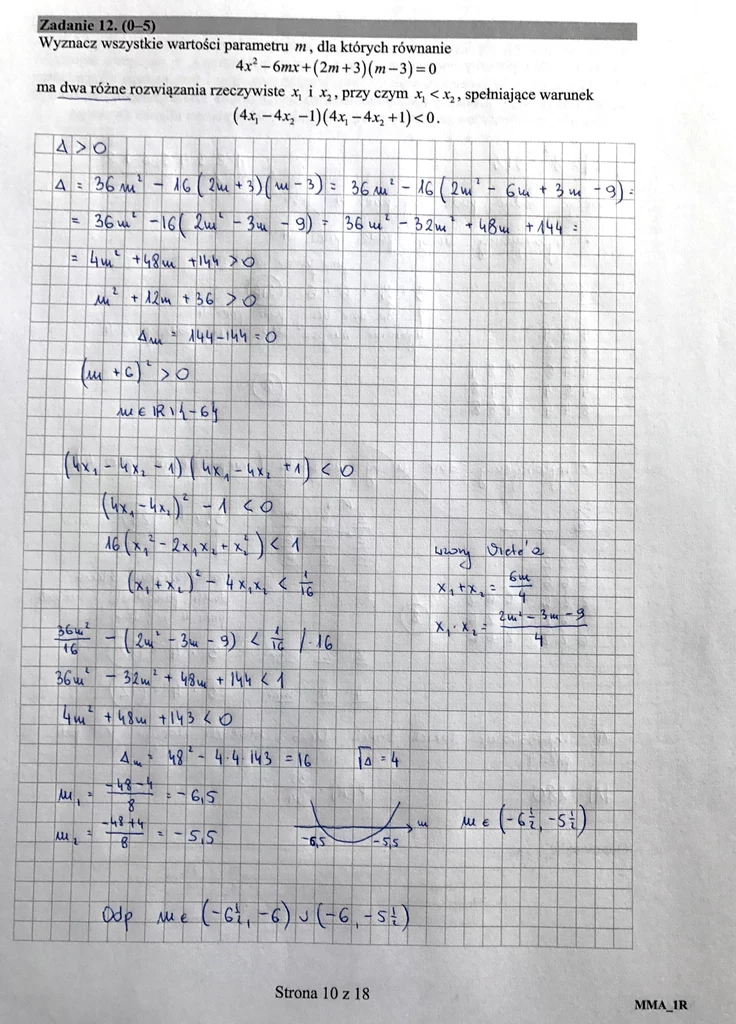 Zadanie 12. (0–5)
Wyznacz wszystkie wartości parametru m, dla których równanie
4x² − 6mx + (2m + 3)(m − 3) = 0
ma dwa różne rozwiązania rzeczywiste x₁ i x₂, przy czym x₁ < x₂, spełniające warunek
(4x₁ − 4x₂ − 1)(4x₁ − 4x₂ + 1) < 0.
Δ > 0
Δ = 36m² − 16(2m + 3)(m − 3) = 36m² − 16(2m² − 6m + 3m − 9) =
= 36m² − 16(2m² − 3m − 9) = 36m² − 32m² + 48m + 144 =
= 4m² + 48m + 144 > 0
m² + 12m + 36 > 0
Δₘ = 144 − 144 = 0
(m + 6)² > 0
m ∈ ℝ \ {−6}
(4x₁ − 4x₂ − 1)(4x₁ − 4x₂ + 1) < 0
(4x₁ − 4x₂)² − 1 < 0
16(x₁² − 2x₁x₂ + x₂²) < 1
(x₁ + x₂)² − 4x₁x₂ < 1/16
wzory Viete'a
x₁ + x₂ = 6m/4
x₁ · x₂ = (2m² − 3m − 9)/4
36m²/16 − (2m² − 3m − 9) < 1/16 / · 16
36m² − 32m² + 48m + 144 < 1
4m² + 48m + 143 < 0
Δₘ = 48² − 4 · 4 · 143 = 16 √Δ = 4
m₁ = (−48 − 4)/8 = −6,5
m₂ = (−48 + 4)/8 = −5,5
−6,5 −5,5 m
m ∈ (−6½, −5½)
Odp m ∈ (−6½, −6) ∪ (−6, −5½)
Strona 10 z 18
MMA_1R